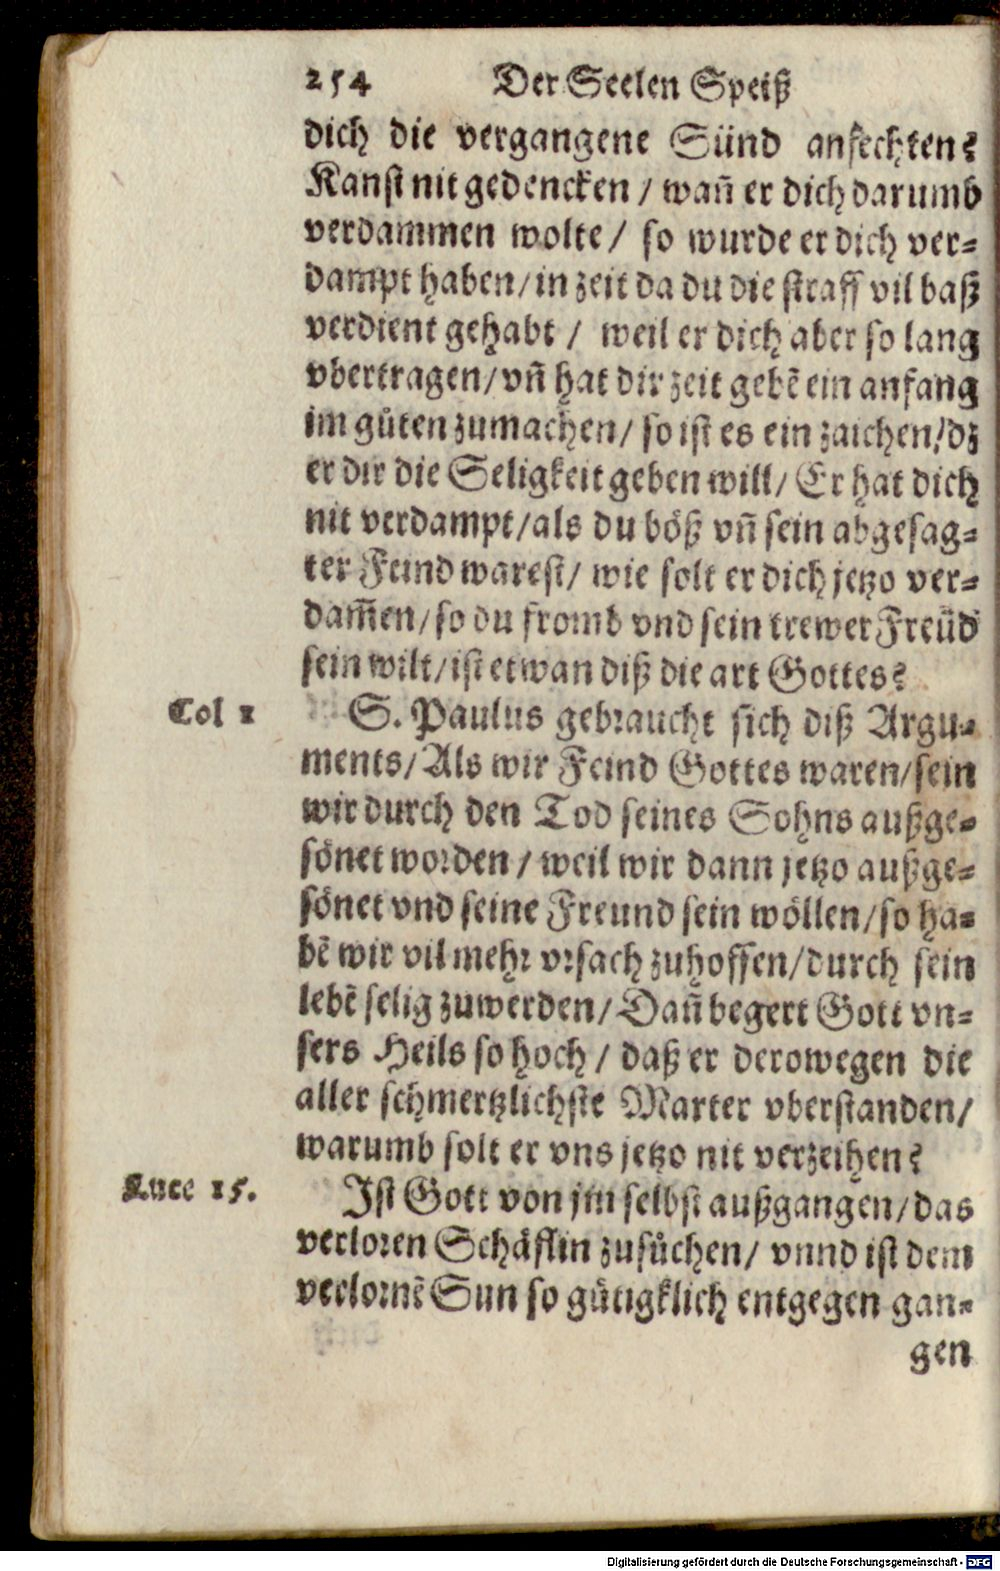 254 Der Seelen Speiß
dich die vergangene Sünd anfechten?
Kanst nit gedencken / wañ er dich darumb
verdammen wolte / so wurde er dich ver-
dampt haben / in zeit da du die straff vil baß
verdient gehabt / weil er dich aber so lang
vbertragen / vñ hat dir zeit gebẽ ein anfang
im gůten zumachen / so ist es ein zaichen / dz
er dir die Seligkeit geben will / Er hat dich
nit verdampt / als du böß vñ sein abgesag-
ter Feind warest / wie solt er dich jetzo ver-
dam̃en / so du fromb vnd sein trewer Freũd
sein wilt / ist etwan diß die art Gottes?
Col 1
S. Paulus gebraucht sich diß Argu-
ments / Als wir Feind Gottes waren / sein
wir durch den Tod seines Sohns außge-
sönet worden / weil wir dann jetzo außge-
sönet vnd seine Freund sein wöllen / so ha-
bẽ wir vil mehr vrsach zuhoffen / durch sein
lebẽ selig zuwerden / Dañ begert Gott vn-
sers Heils so hoch / daß er derowegen die
aller schmertzlichste Marter vberstanden /
warumb solt er vns jetzo nit verzeihen?
Luce 15.
Ist Gott von jm selbst außgangen / das
verloren Schäflin zusůchen / vnnd ist dem
verlornẽ Sun so gütigklich entgegen gan-
gen
Digitalisierung gefördert durch die Deutsche Forschungsgemeinschaft - DFG